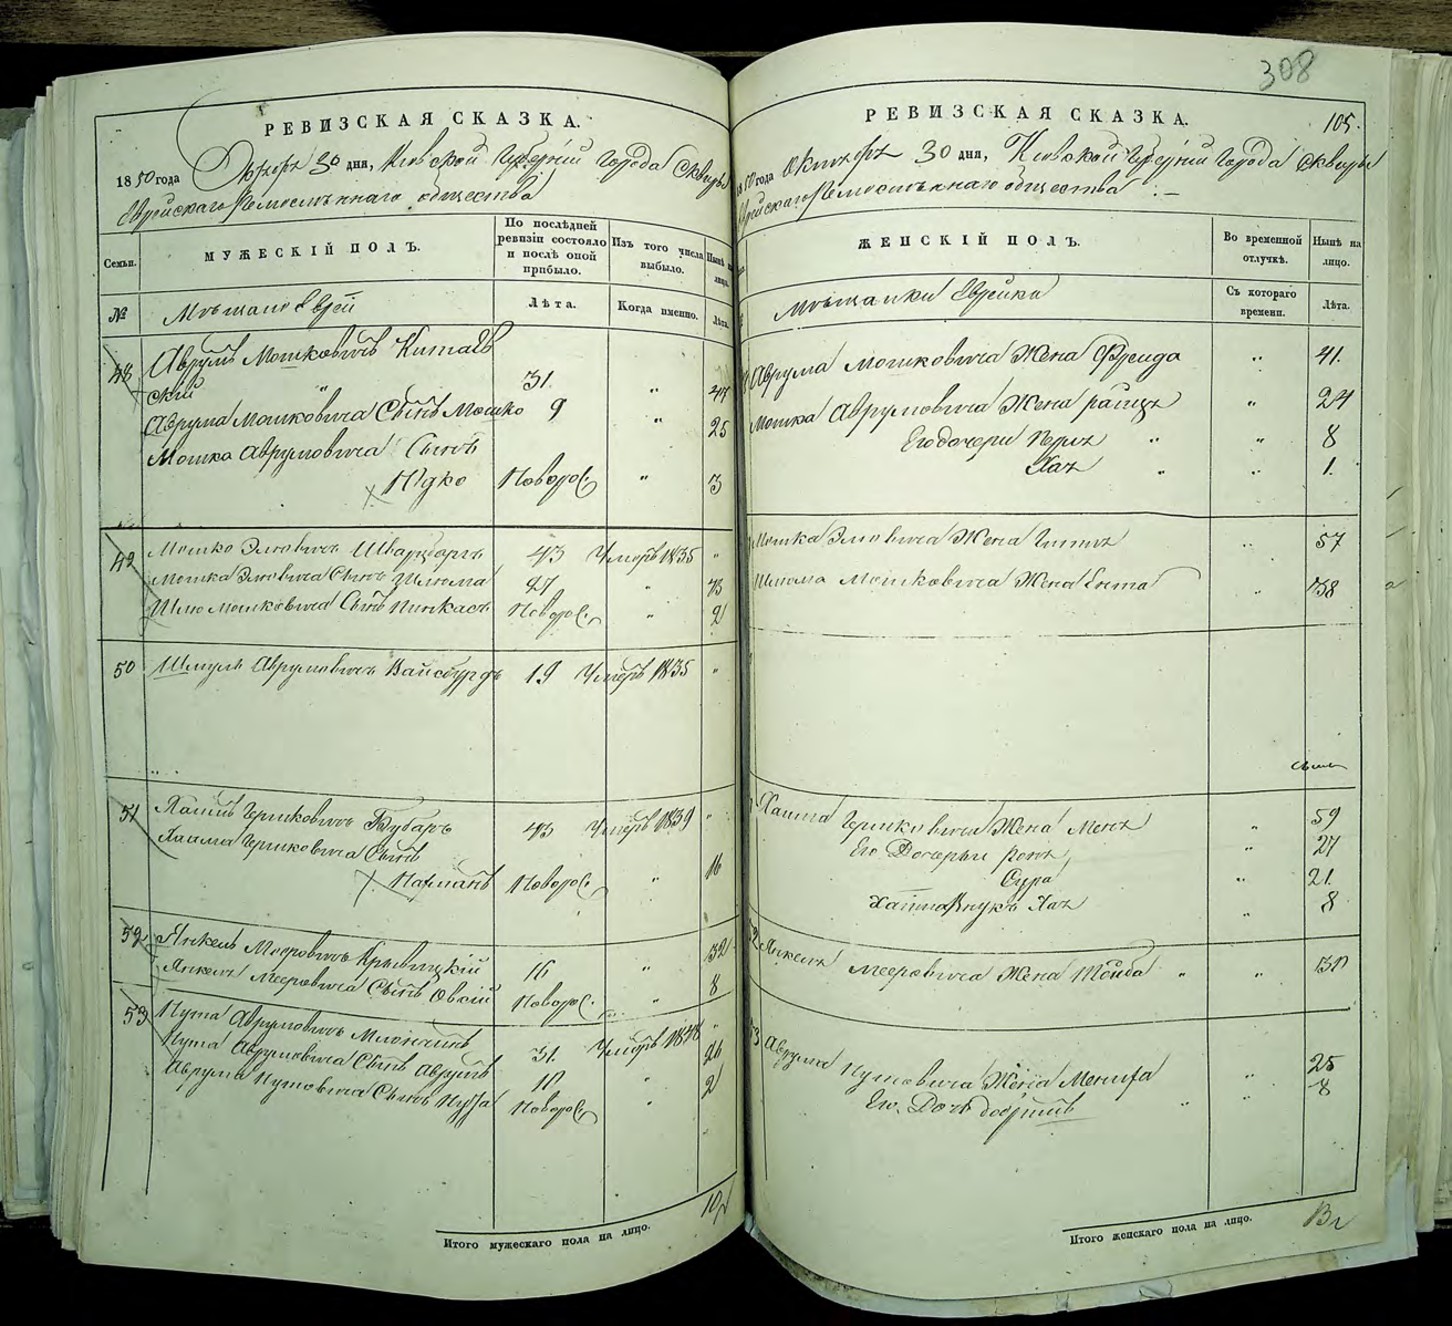 308
РЕВИЗСКАЯ СКАЗКА.
1850 года Октября 30 дня, Киевской Губерніи города Сквиры
Еврейскаго Ремесленнаго общества
Семьи.
МУЖЕСКІЙ ПОЛЪ.
По послѣдней ревизіи состояло и послѣ оной прибыло.
Изъ того числа выбыло.
Нынѣ на лицо.
№
Мѣщане Евреи
Лѣта.
Когда именно.
Лѣта.
Аврумъ Мошковичъ Китаев
скій 31. " 47
Аврума Мошковича Сынъ Мошко 9 " 25
Мошка Аврумовича Сынъ
Новорож. " 3
49 Мошко Элювичъ Шварцбургъ 43 Умеръ 1835 "
Мошка Элювича Сынъ Шлюма 27 "
Шлю Мошковича Сынъ Пинкасъ Новорож. " 2
50 Шмуль Аврумовичъ Вайсбурдъ 19 Умеръ 1835 "
51 Хаимъ Гершковичъ 43 Умеръ 1839 "
Хаима Гершковича Сынъ
Нахманъ Новорож. " 16
52 Янкель Мееровичъ Крывицкій 16 " 32
Янкеля Мееровича Сынъ Овсій Новорож. " 8
53 Нута Аврумовичъ 31. Умеръ 1848 "
Нута Аврумовича Сынъ Аврумъ " 26
Аврума Нутовича Сынъ Новорож. " 2
Итого мужескаго пола на лицо. 10
РЕВИЗСКАЯ СКАЗКА. 105.
1850 года Октября 30 дня, Киевской Губерніи города Сквиры
Еврейскаго Ремесленнаго общества :—
ЖЕНСКІЙ ПОЛЪ.
Во временной отлучкѣ.
Нынѣ на лицо.
Мѣщанки Еврейки
Съ котораго времени.
Лѣта.
Аврума Мошковича Жена Фрейда " 41.
Мошка Аврумовича Жена " 24
Его дочери Перля " " 8
Хая " " 1.
Мошка Элювича Жена " 57
Шлюма Мошковича Жена Ента " 38
Хаима Гершковича Жена " 59
Его Дочери " 27
Сура " 21.
Хаима Внукъ Хая " 8
Янкеля Мееровича Жена Тойба " "
Аврума Нутовича Жена " 25
Его Дочь " " 8
Итого женскаго пола на лицо. 13